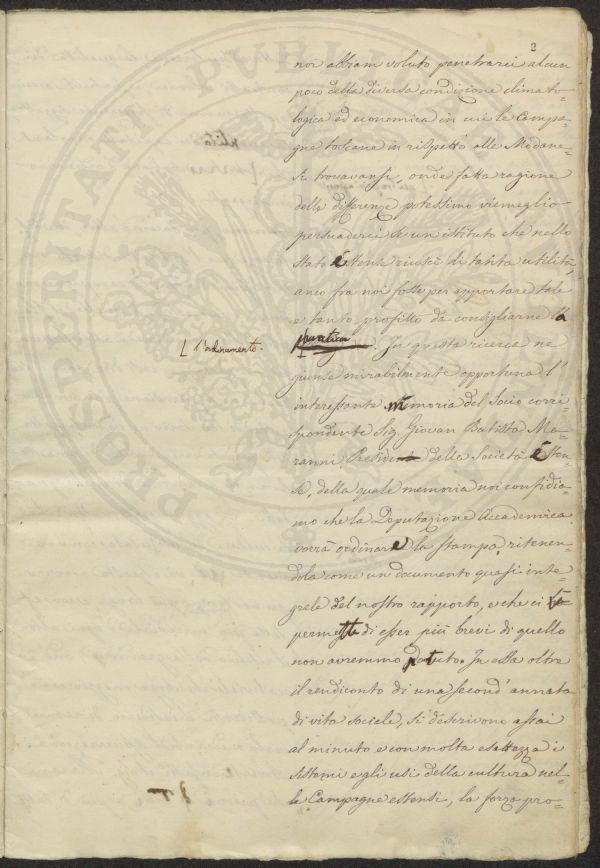 2
noi abbiam voluto penetrarci alcun
poco della diversa condizione climato-
logica ed economica in cui le Campa-
gne toscane in rispetto alle Modane-
si trovavansi, onde fatta ragione
delle differenze potessimo viemeglio
persuaderci se un istituto che nello
Stato Estense riuscì di tanta utilità
anco fra noi fosse per apportare tale
e tanto profitto da consigliarne la
l'ordinamento.
pratica. In questa ricerca ne
giunse mirabilmente opportuna l'
interessante memoria del Socio corri-
spondente Sig. Giovan Batista Me-
ranni, della Società Esten-
se, della quale memoria noi confidia-
mo che la Deputazione Accademica
vorrà ordinare la stampa, ritenen-
dola come un documento quasi inte-
grale del nostro rapporto, e che ci
permette di esser più brevi di quello
non avremmo potuto. In essa oltre
il rendiconto di una second' annata
di vita sociale, si descrivono assai
al minuto e con molta esattezza i
sistemi e gli usi della cultura nel-
le Campagne estensi, la forza pro-
PUBLICAE